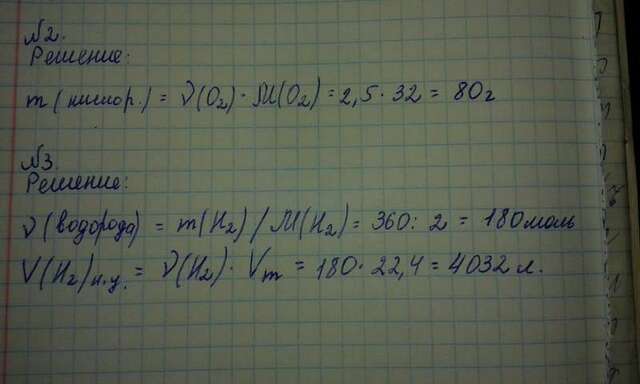 №2.
Решение:
m(кислор.) = ν(O₂) · M(O₂) = 2,5 · 32 = 80г
№3.
Решение:
ν(водорода) = m(H₂) / M(H₂) = 360 : 2 = 180 моль
V(H₂)н.у. = ν(H₂) · Vm = 180 · 22,4 = 4032 л.